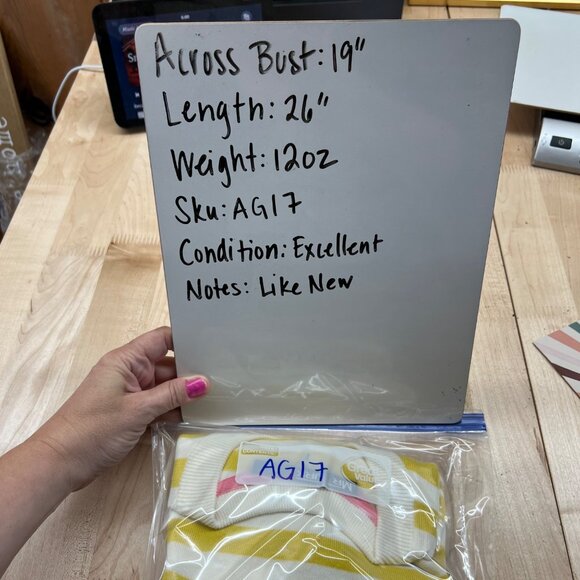 Across Bust: 19"
Length: 26"
Weight: 12oz
Sku: AG17
Condition: Excellent
Notes: Like New
AG17